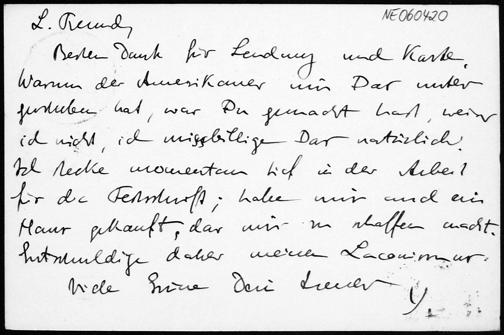 NE060420
L. Freund,
Besten Dank für Sendung und Karte,
Warum der Amerikaner mir Dar unter
geschoben hat, war Du gemacht hast, weiss
ich nicht, ich missbillige Dar natürlich.
Ich stecke momentan tief in der Arbeit
für die Festschrift; habe mir auch ein
Haus gekauft, dar mir zu schaffen macht.
Entschuldige daher meinen Laconismus.
Viele Grüsse Dein treuer